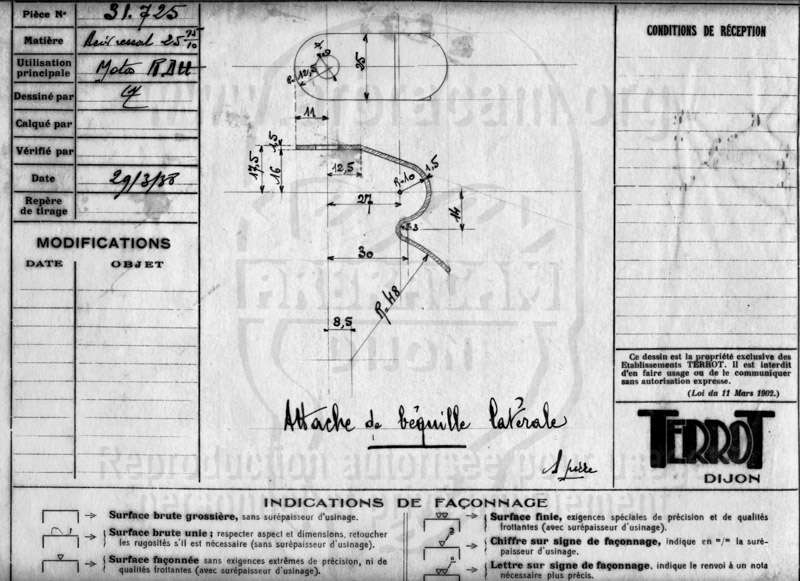 Pièce N° 31.725
Matière Acier ressort 25 75/10
Utilisation
principale Motos RDU
Dessiné par
Calqué par
Vérifié par
Date 29/3/38
Repère
de tirage
MODIFICATIONS
DATE OBJET
R=12,5
25
11
1,5
17,5
16
12,5
R=10
1,5
27
14
30
R=48
8,5
Attache de béquille latérale
1 pièce
CONDITIONS DE RÉCEPTION
Ce dessin est la propriété exclusive des
Etablissements TERROT. Il est interdit
d'en faire usage ou de le communiquer
sans autorisation expresse.
(Loi du 11 Mars 1902.)
TERROT
DIJON
www.arbracam.org
ARBRACAM
DIJON
Reproduction autorisée pour usage
personnel seulement
INDICATIONS DE FAÇONNAGE
Surface brute grossière, sans surépaisseur d'usinage.
Surface brute unie; respecter aspect et dimensions, retoucher
les rugosités s'il est nécessaire (sans surépaisseur d'usinage).
Surface façonnée sans exigences extrêmes de précision, ni de
qualités frottantes (avec surépaisseur d'usinage).
Surface finie, exigences spéciales de précision et de qualités
frottantes (avec surépaisseur d'usinage).
Chiffre sur signe de façonnage, indique en m/m la suré-
paisseur d'usinage.
Lettre sur signe de façonnage, indique le renvoi à un nota
nécessaire plus précis.